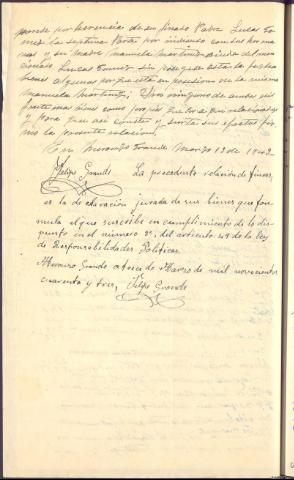 ponde por herencia de su finado Padre Lucas To-
me la septima Parte por indiviso con sus herma
nos y su madre Manuela Martinez viuda del men
cionado Lucas Tomé, sin poseer hasta la fecha
bienes algunos por
Manuela Martinez; Sin ninguno de ambos dis
fruta mas bienes como propios
y para que asi conste y surta sus efectos fir
mo la presente relacion.
En Morango Grande Marzo 13 de 1943
Felipe Grande La precedente relación de fincas,
es la declaración jurada de sus bienes que for-
mula el que suscribe en cumplimiento de lo dis-
puesto en el número 2º, del artículo 49 de la Ley
de Responsabilidades Politicas.
Grande a trece de Marzo de mil novecientos
cuarenta y tres, Felipe Grande